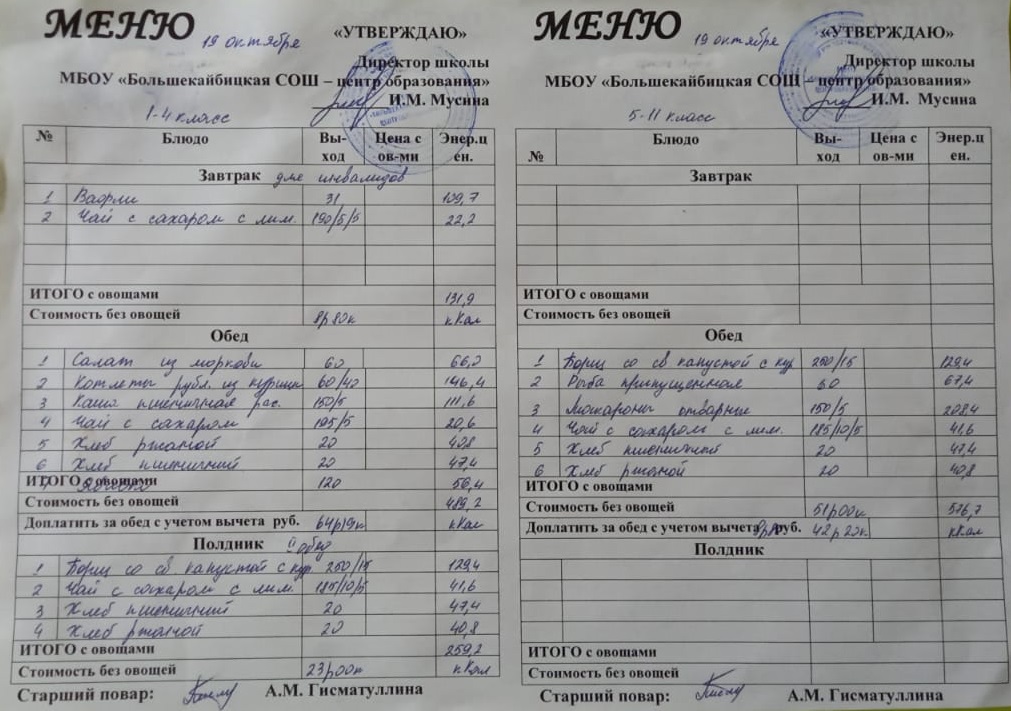 МЕНЮ 19 октября «УТВЕРЖДАЮ»
Директор школы
МБОУ «Большекайбицкая СОШ – центр образования»
И.М. Мусина
1-4 класс
№ Блюдо Вы-ход Цена с ов-ми Энер.ц ен.
Завтрак для инвалидов
1 Вафли 31 109,7
2 Чай с сахаром с лим. 190/5/5 22,2
ИТОГО с овощами 131,9
Стоимость без овощей 8р80к кКал
Обед
1 Салат из моркови 60 66,2
2 Котлеты рубл. из курицы 60/40 146,4
3 Каша пшеничная рас. 150/5 111,6
4 Чай с сахаром 195/5 20,6
5 Хлеб ржаной 20 40,8
6 Хлеб пшеничный 20 47,4
ИТОГО с овощами
7 Яблоко 120 56,4
Стоимость без овощей 489,2
Доплатить за обед с учетом вычета руб. 64р19к кКал
Полдник II обед
1 Борщ со св капустой с кур. 250/15 129,4
2 Чай с сахаром с лим. 185/10/5 41,6
3 Хлеб пшеничный 20 47,4
4 Хлеб ржаной 20 40,8
ИТОГО с овощами 259,2
Стоимость без овощей 23р00к кКал
Старший повар: А.М. Гисматуллина
МЕНЮ 19 октября «УТВЕРЖДАЮ»
Директор школы
МБОУ «Большекайбицкая СОШ – центр образования»
И.М. Мусина
5-11 класс
№ Блюдо Вы-ход Цена с ов-ми Энер.ц ен.
Завтрак
ИТОГО с овощами
Стоимость без овощей
Обед
1 Борщ со св капустой с кур 250/15 129,4
2 Рыба припущенная 60 67,4
3 Макароны отварные 150/5 208,4
4 Чай с сахаром с лим. 185/10/5 41,6
5 Хлеб пшеничный 20 47,4
6 Хлеб ржаной 20 40,8
ИТОГО с овощами
Стоимость без овощей 51р00к 516,7
Доплатить за обед с учетом вычета руб. 42р20к кКал
Полдник
ИТОГО с овощами
Стоимость без овощей
Старший повар: А.М. Гисматуллина